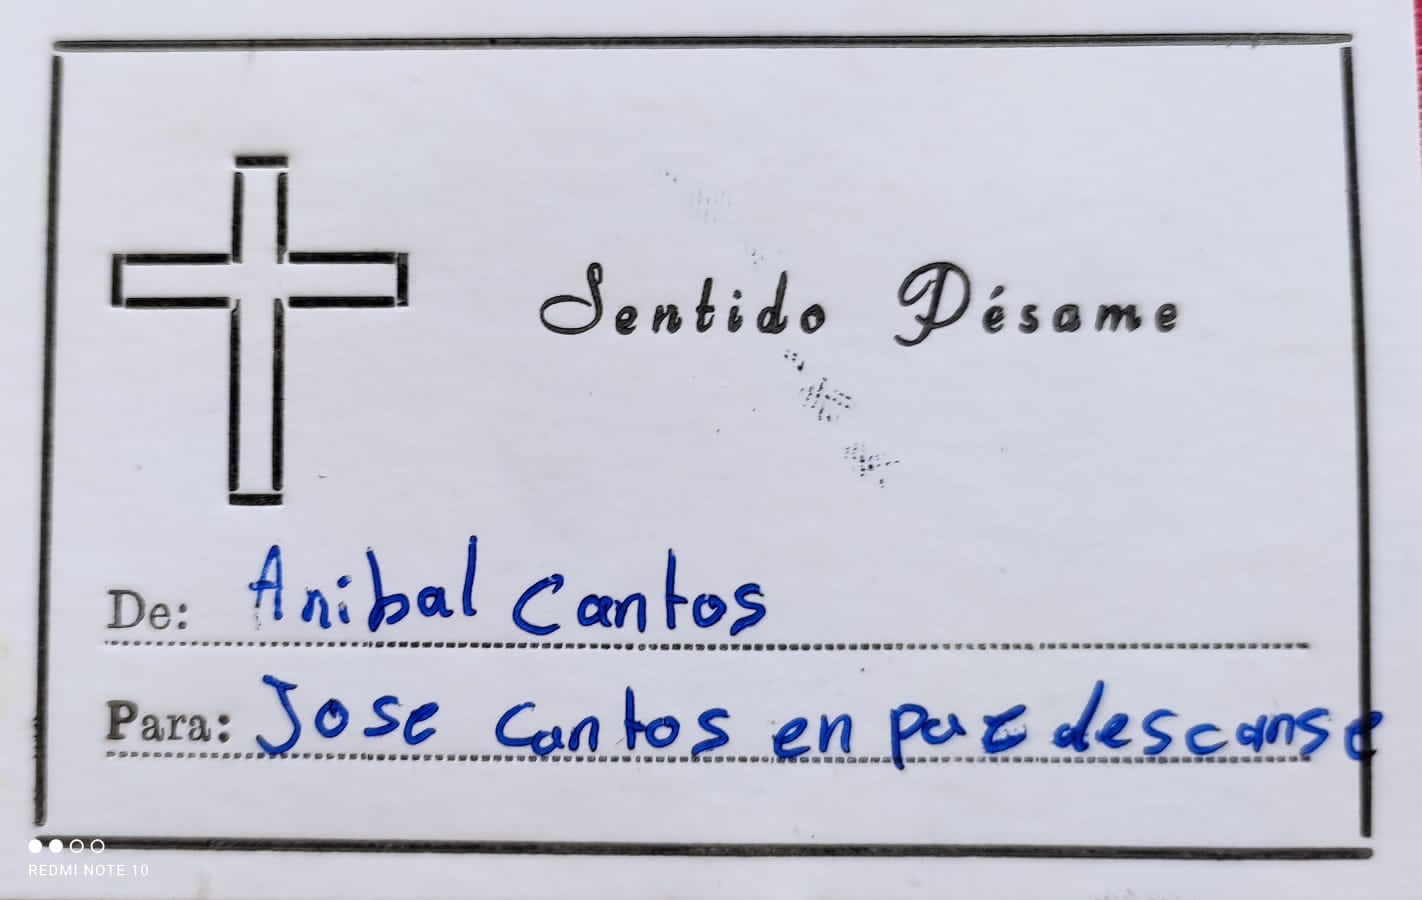 Sentido Pésame
De: Anibal Cantos
Para: Jose Cantos en paz descanse
REDMI NOTE 10